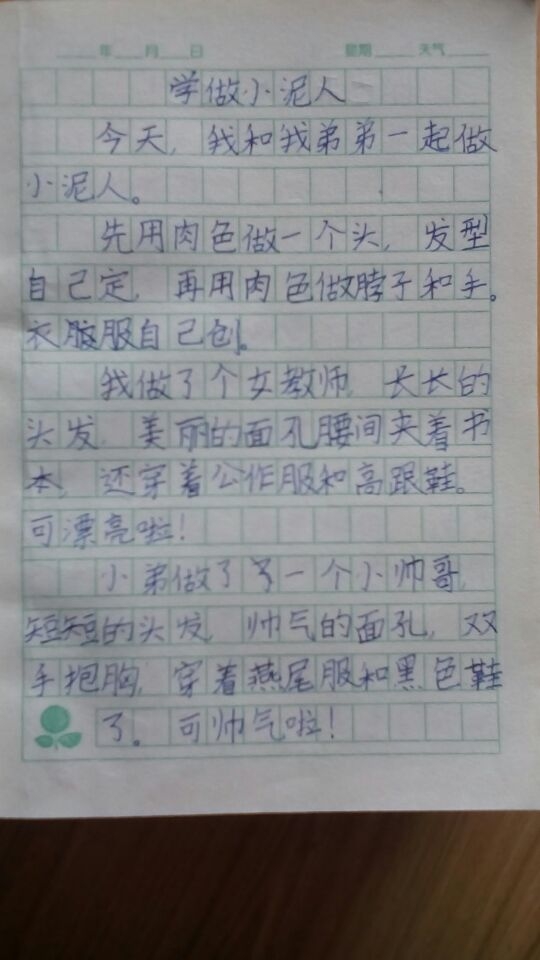 年 月 日 星期 天气
学做小泥人
今天，我和我弟弟一起做
小泥人。
先用肉色做一个头，发型
自己定，再用肉色做脖子和手。
衣服自己创。
我做了个女教师，长长的
头发，美丽的面孔腰间夹着书
本，还穿着公作服和高跟鞋。
可漂亮啦！
小弟做了了一个小帅哥，
短短的头发，帅气的面孔，双
手抱胸，穿着燕尾服和黑色鞋
了。可帅气啦！